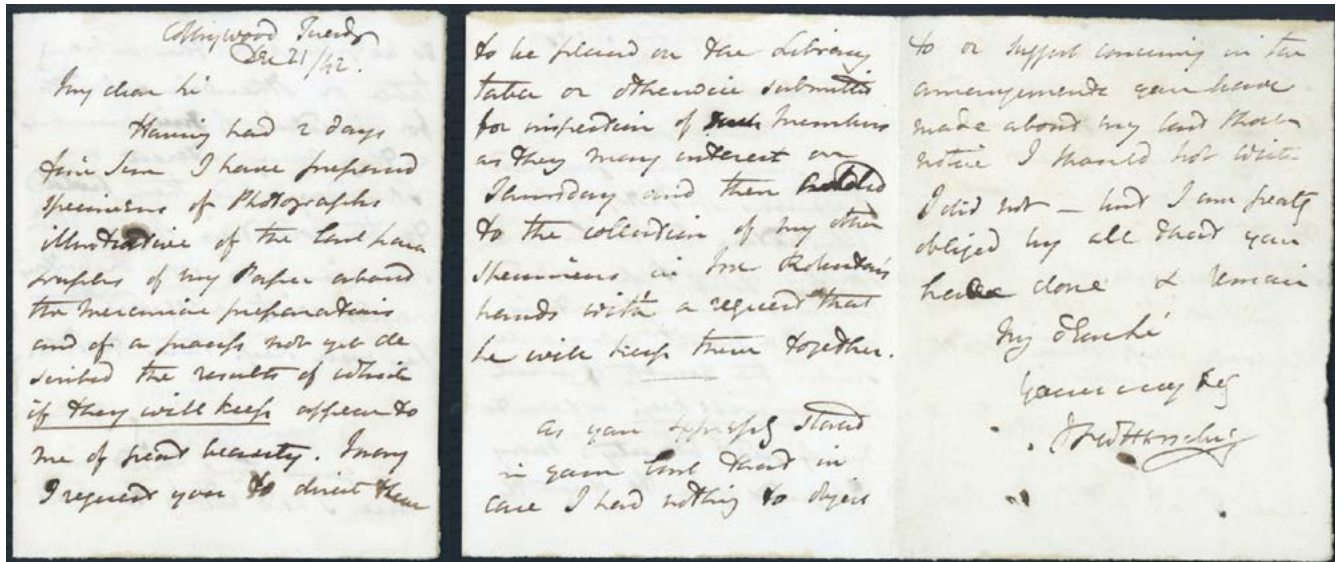 Collingwood Tuesdy
Dec 21/42.
My dear Sir
Having had 2 days
fair Sun I have prepared
specimens of Photographs
illustrative of the last para
graphs of my Paper about
the mercurial preparations
and of a process not yet de
scribed the results of which
if they will keep appear to
me of great beauty. May
I request you to direct them
to be placed on the Library
table or otherwise submitted
for inspection of such Members
as they may interest on
Thursday and then added
to the collection of my other
specimens in Mr Roberton's
hands with a request that
he will keep them together.
As you expressly stated
in your last that in
case I had nothing to object
to or suggest concerning in the
arrangements you have
made about my last
notice I should not write
I did not – but I am greatly
obliged by all that you
have done & remain
My d Sir
yours very
JFW Herschel